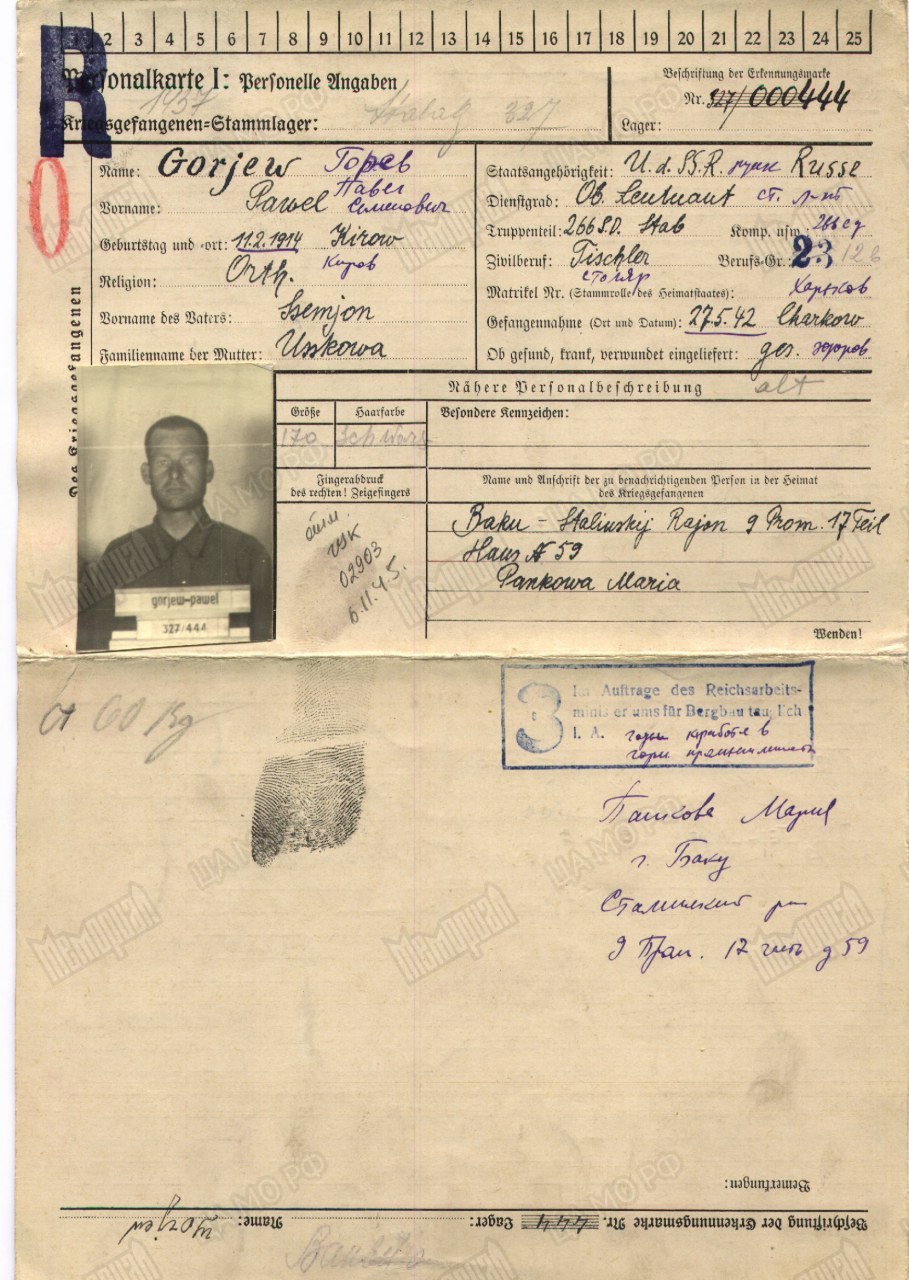 R
1 2 3 4 5 6 7 8 9 10 11 12 13 14 15 16 17 18 19 20 21 22 23 24 25
Personalkarte I: Personelle Angaben
Kriegsgefangenen-Stammlager: Stalag 327
Beschriftung der Erkennungsmarke
Nr. 327/000444
Lager:
Des Kriegsgefangenen
Name: Gorjew Горев
Vorname: Pawel Павел Семенович
Geburtstag und -ort: 11.2.1914 Kirow
Religion: Orth. Киров
Vorname des Vaters: Ssemjon
Familienname der Mutter: Usskowa
Staatsangehörigkeit: U.d.SS.R. Russe
Dienstgrad: Ob. Leutnant ст. л-нт
Truppenteil: 266 S.D. Stab Komp. usw.: 266 сд
Zivilberuf: Tischler Berufs-Gr.: 23 126
столяр
Matrikel Nr. (Stammrolle des Heimatstaates): Харьков
Gefangennahme (Ort und Datum): 27.5.42 Charkow
Ob gesund, krank, verwundet eingeliefert: ges. здоров
Nähere Personalbeschreibung alt
Größe Haarfarbe Besondere Kennzeichen:
170 Schwarz
Fingerabdruck
des rechten! Zeigefingers
Name und Anschrift der zu benachrichtigenden Person in der Heimat
des Kriegsgefangenen
Baku - Stalinskij Rajon 9 Prom. 17 Teil
Haus № 59
Pankowa Maria
02903
6.11.45.
gorjew-pawel
327/444
Wenden!
60 Kg
3 Im Auftrage des Reichsarbeits-
ministeriums für Bergbau tauglich
I. A. годен к работе в
горн. промышленности
Панкова Мария
г. Баку
Сталинский р-н
9 Пром. 17 часть д 59
Bemerkungen:
Beschriftung der Erkennungsmarke Nr. 444 Lager: Name: Gorjew
Мемориал
ЦАМО РФ